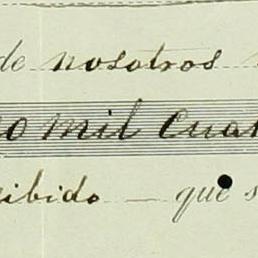 de nosotros
mil cua
ibido — que s